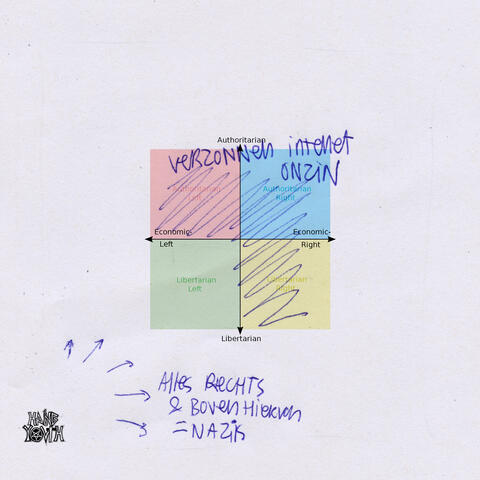 Authoritarian
VERZONNEN internet
ONZIN
Authoritarian
Left
Authoritarian
Right
Economic-
Left
Economic-
Right
Libertarian
Left
Libertarian
Right
Libertarian
Alles RECHTS
& Boven Hiervan
= NAZIS
YOUTH